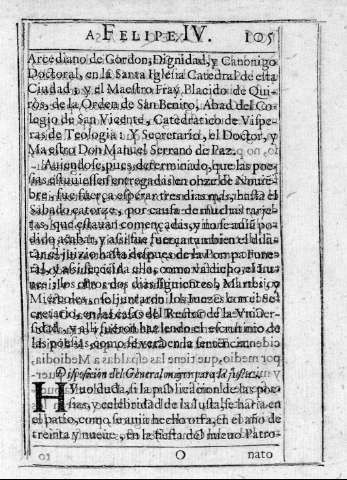 A FELIPE IV. 105
Arcediano de Gordon, Dignidad, y Canonigo
Doctoral, en la Santa Iglesia Catedral de esta
Ciudad; y el Maestro Fray Placido de Qui-
ròs, de la Orden de San Benito, Abad del Co-
legio de San Vicente, Catedratico de Vispe-
ras de Teologia: Y Secretario, el Doctor, y
Maestro Don Manuel Serrano de Paz.
Auiendose, pues, determinado, que las poe-
sias estuuiessen entregadas en onze de Nouiẽ-
bre, fue fuerça esperar tres dias mas, hasta el
Sabado catorze, por causa de muchas tarje-
tas, que estauan començadas, y no se auiã po-
dido acabar, y assi fue fuerça tambien el dila-
tar el juizio hasta despues de la Pompa Fune-
ral, y assi sucediò
los otros dos dias siguientes, Martes, y
Miercoles, se juntaron los Iuezes con el Se-
cretario, en las casas del Rector de la Vniuer-
sidad, y alli fueron haziendo el escrutinio de
las poesias, como se verà en la sentencia.
Disposicion del General mayor para la justa.
HVuo duda, si la publicacion de las poe-
sias, y celebridad de la Iusta, se haria en
el patio, como se auia hecho otra, en el año de
treinta y nueue, en la fiesta del nueuo Patro-
O nato